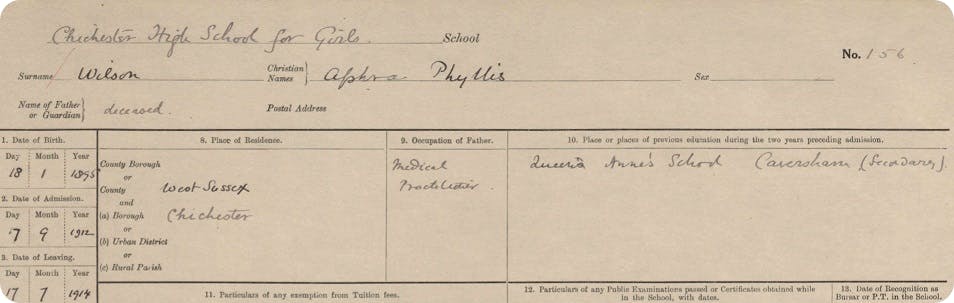 Chichester High School for Girls. School
No. 156
Surname Wilson Christian Names } Aphra Phyllis Sex
Name of Father or Guardian } deceased. Postal Address
1. Date of Birth.
Day Month Year
18 1 1895
2. Date of Admission.
Day Month Year
17 9 1912
3. Date of Leaving.
Day Month Year
17 7 1914
8. Place of Residence.
County Borough
or
County West Sussex
and
(a) Borough Chichester
or
(b) Urban District
or
(c) Rural Parish
9. Occupation of Father.
Medical
Practitioner.
10. Place or places of previous education during the two years preceding admission.
Queen Anne's School Caversham (Secondary).
11. Particulars of any exemption from Tuition fees.
12. Particulars of any Public Examinations passed or Certificates obtained while
in the School, with dates.
13. Date of Recognition as
Bursar or P.T. in the School.